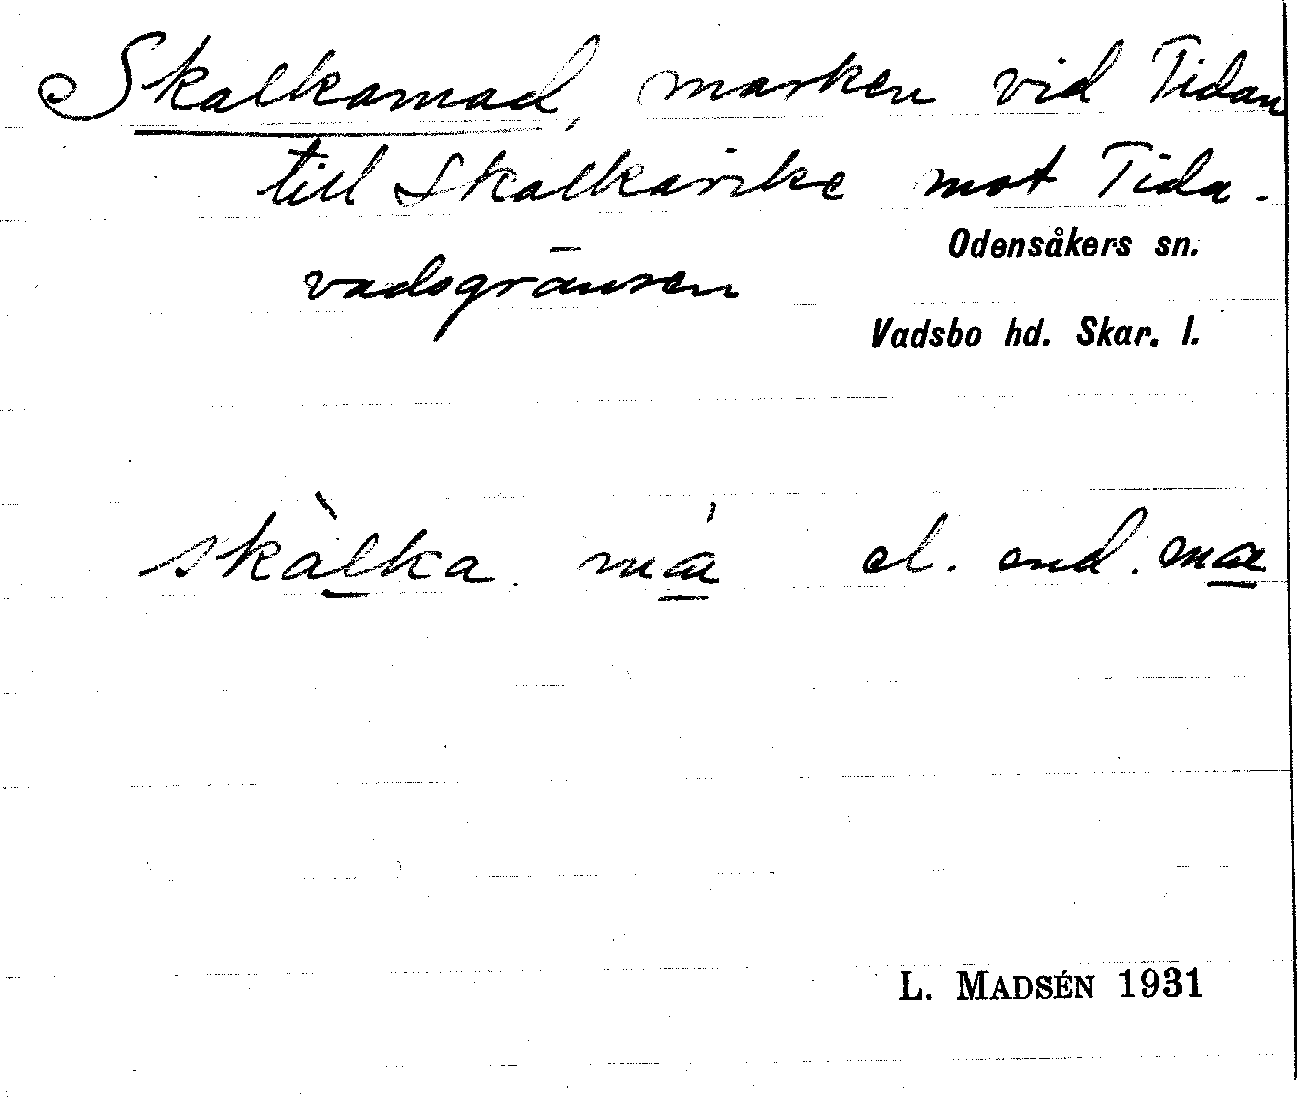 Skalkamad, marken vid Tidan
till Skalkarike mot Tida-
vadsgränsen
Odensåkers sn.
Vadsbo hd. Skar. l.
skàlka má el. end. ma
L. MADSÉN 1931